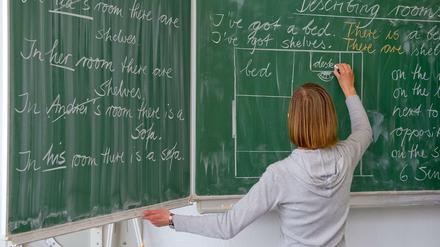 room there are
shelves
In her room there are
shelves.
In Andrei's room there is a
sofa.
In his room there is a sofa.
Describing room
I've got a bed. There is a be
I've got shelves. There are shel
bed
desk
on the
on the
next to
opposi
on the s
6 Sen